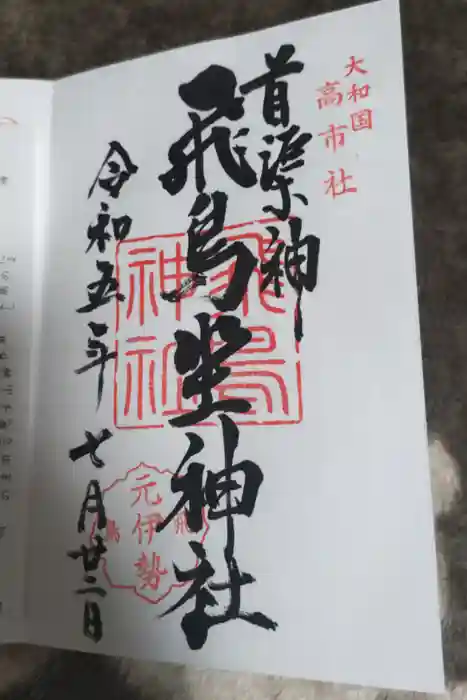 大和国
高市社
首渠神
飛鳥坐神社
飛鳥
神社
元伊勢
飛鳥
令和五年 七月廿二日